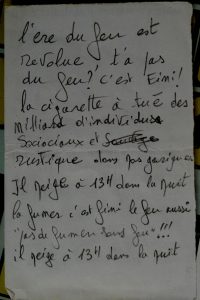 l'ère du feu est
revolue t'a pas
du feu? c'est Fini!
la cigarette à tué des
milliard d'individus
Sociaux et
rustique dans nos
Il neige à 13H dans la nuit
la fumer c'est fini le feu aussi
"pas de fumer sans feu"!!!
il neige à 13H dans la nuit